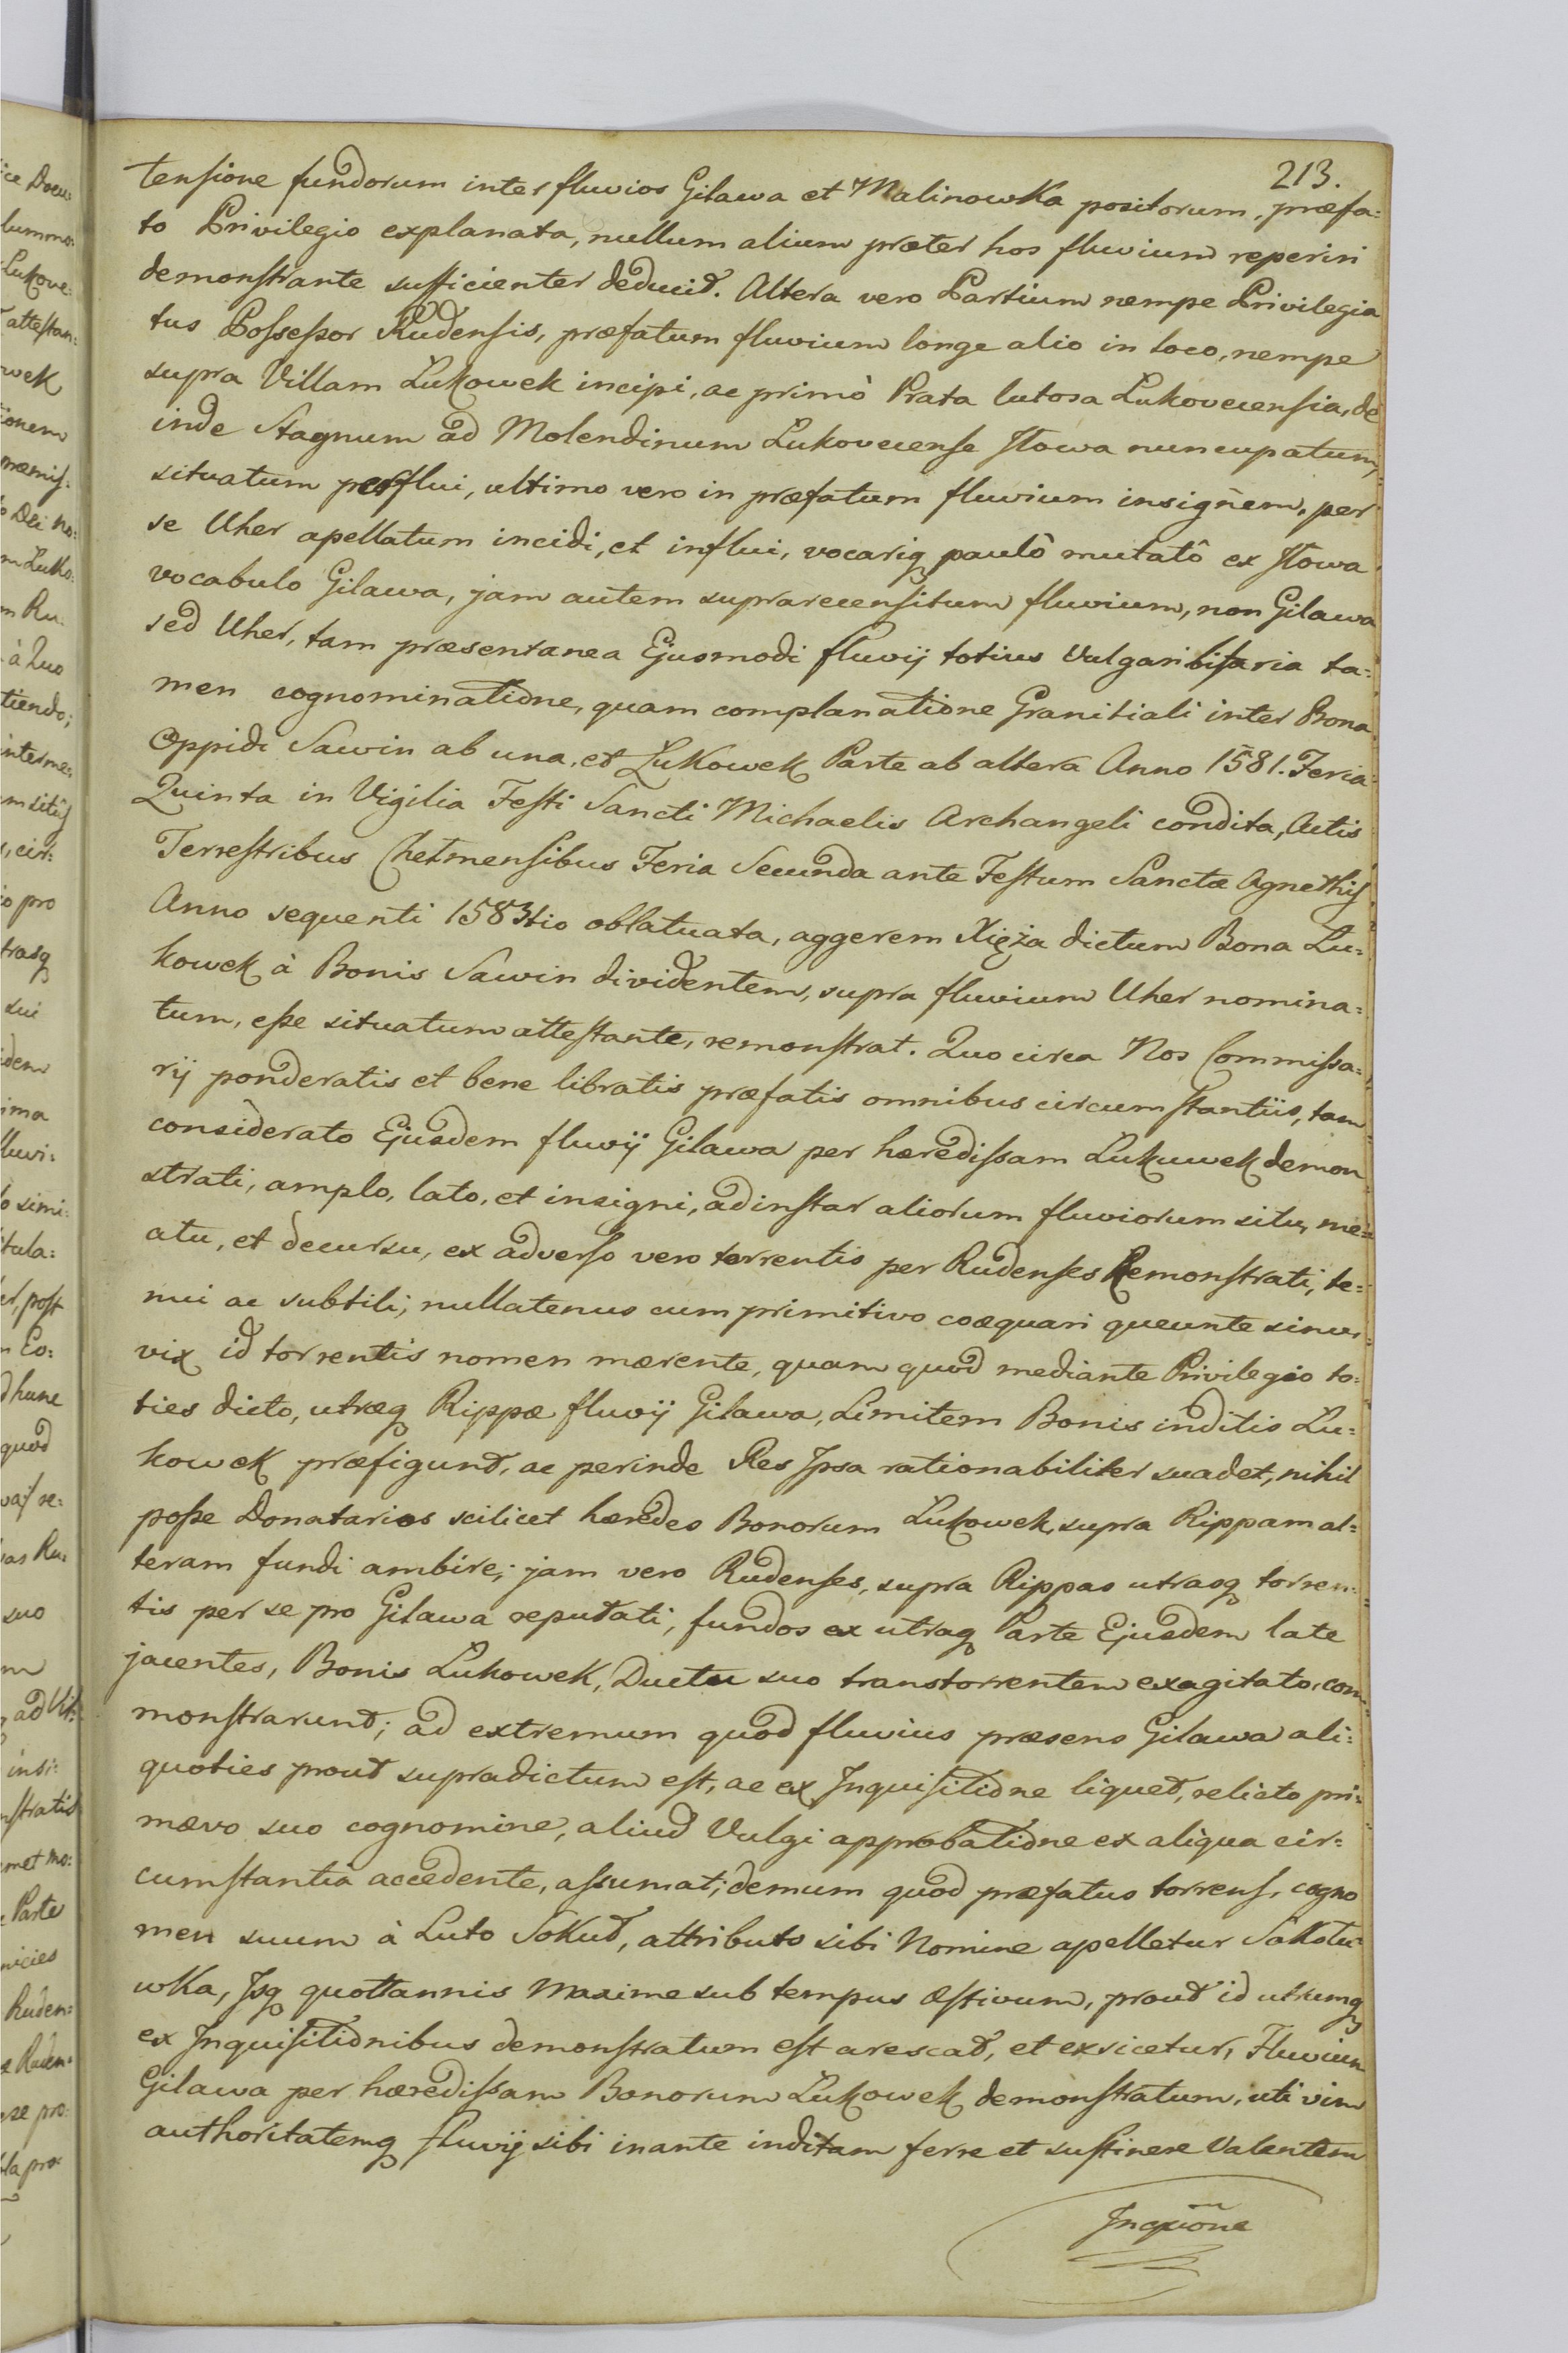 213.
tensione fundorum inter fluvios Gilawa et Malinowka positorum, præfa=
to Privilegio explanata, nullum alium præter hos fluvium reperiri
demonstrante sufficienter deducit. Altera vero Partium nempe Privilegia
tus Possessor Rudensis, præfatum fluvium longe alio in loco, nempe
supra Villam Lukowek incipi, ac primò Prata lutosa Lukovecensia, de
inde Stagnum ad Molendinum Lukovecense Iłowa nuncupatum,
situatum perflui, ultimo vero in præfatum fluvium insigñem, per
se Uher apellatum incidi, et influi, vocariq paulô mutatô ex Iłowa
vocabulo Gilawa, jam autem suprarecensitum fluvium, non Gilawa
sed Uher, tam præsentanea Ejusmodi fluvij totius Vulgari bifaria ta=
men cognominatione, quam complanatione Granitiali inter Bona
Oppidi Sawin ab una, et Lukowek Parte ab altera Anno 1581. Feria
Quinta in Vigilia Festi Sancti Michaelis Archangeli condita, Actis
Terrestribus Chelmensibus Feria Secunda ante Festum Sanctæ Agnethis
Anno sequenti 1583tio oblatuata, aggerem Xięża dictum Bona Lu=
kowek à Bonis Sawin dividentem, supra fluvium Uher nomina=
tum, esse situatum attestante, remonstrat. Quo circa Nos Commissa=
rij ponderatis et bene libratis præfatis omnibus circumstantiis, tam
considerato Ejusdem fluvij Gilawa per hæredissam Lukuwek demon
strati, amplo, lato, et insigni, ad instar aliorum fluviorum situ, me=
atu, et decursu, ex adverso vero torrentis per Rudenses Remonstrati, te=
nui ac subtili, nullatenus cum primitivo coæquari queunte sinu,
vix id torrentis nomen mærente, quam quod mediante Privilegio to=
ties dicto, utræq Rippæ fluvij Gilawa, Limitem Bonis inditis Lu=
kowek præfigunt, ac perinde Res Ipsa rationabiliter suadet, nihil
posse Donatarios scilicet hæredes Bonorum Lukowek, supra Rippam al=
teram fundi ambire; jam vero Rudenses, supra Rippas utrasq torren=
tis per se pro Gilawa reputati, fundos ex utraq Parte Ejusdem late
jacentes, Bonis Lukowek, Ductu suo transtorrentem exagitato, com
monstrarunt; ad extremum quod fluvius præsens Gilawa ali=
quoties prout supradictum est, ac ex Inquisitione liquet, relicto pri=
mævo suo cognomine, aliud Vulgi approbatione ex aliqua cir=
cumstantia accedente, assumat; demum quod præfatus torrens, cogno
men suum à Luto Sokut, attributo sibi Nomine apelletur Sakotu
wka, Isq quottannis maxime sub tempus æstivum, prout id utrumq
ex Inquisitionibus demonstratum est arescat, et exsicetur, Fluvium
Gilawa per hæredissam Bonorum Lukowek demonstratum, uti vim
authoritatemq fluvij sibi inante inditam ferre et sustinere Valentem